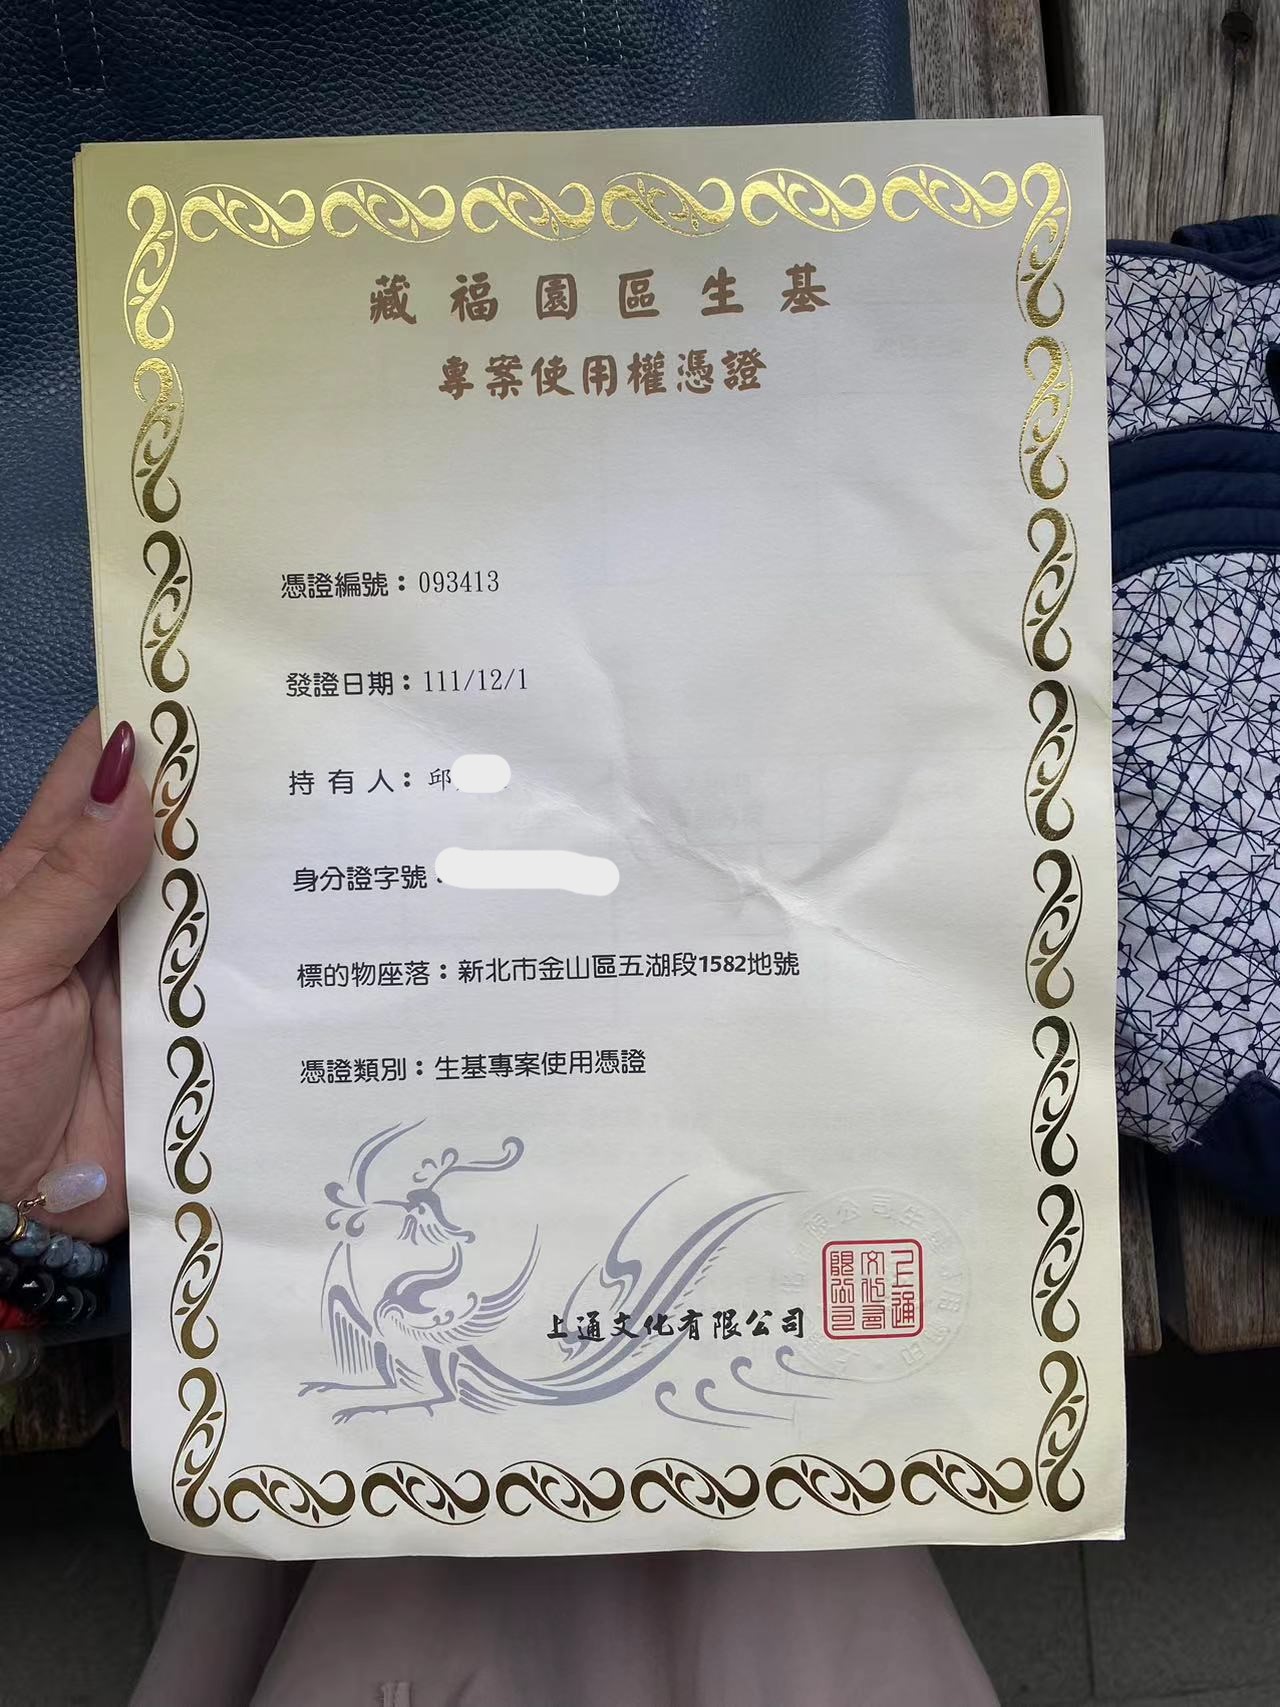 藏福園區生基
專案使用權憑證
憑證編號：093413
發證日期：111/12/1
持有人：邱
身分證字號：
標的物座落：新北市金山區五湖段1582地號
憑證類別：生基專案使用憑證
上通文化有限公司
上通
文化有
限公司